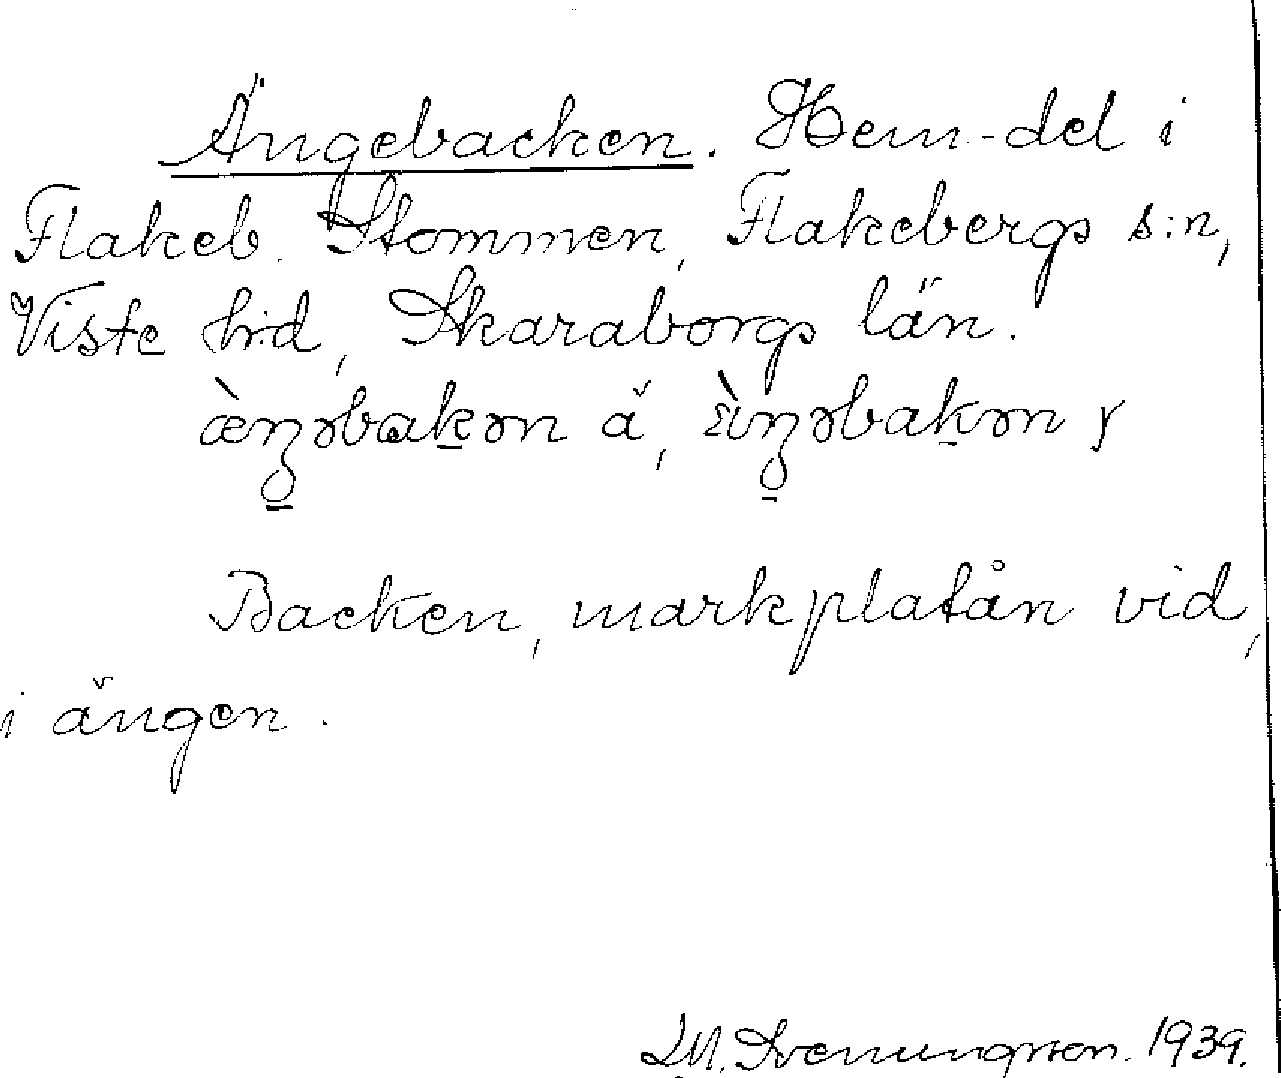 Ängebacken. Hem-del i
Flakeb. Stommen, Flakebergs s:n,
Viste hd, Skaraborgs län.
Backen, markplatån vid,
i ängen.
Svenungsson. 1939.